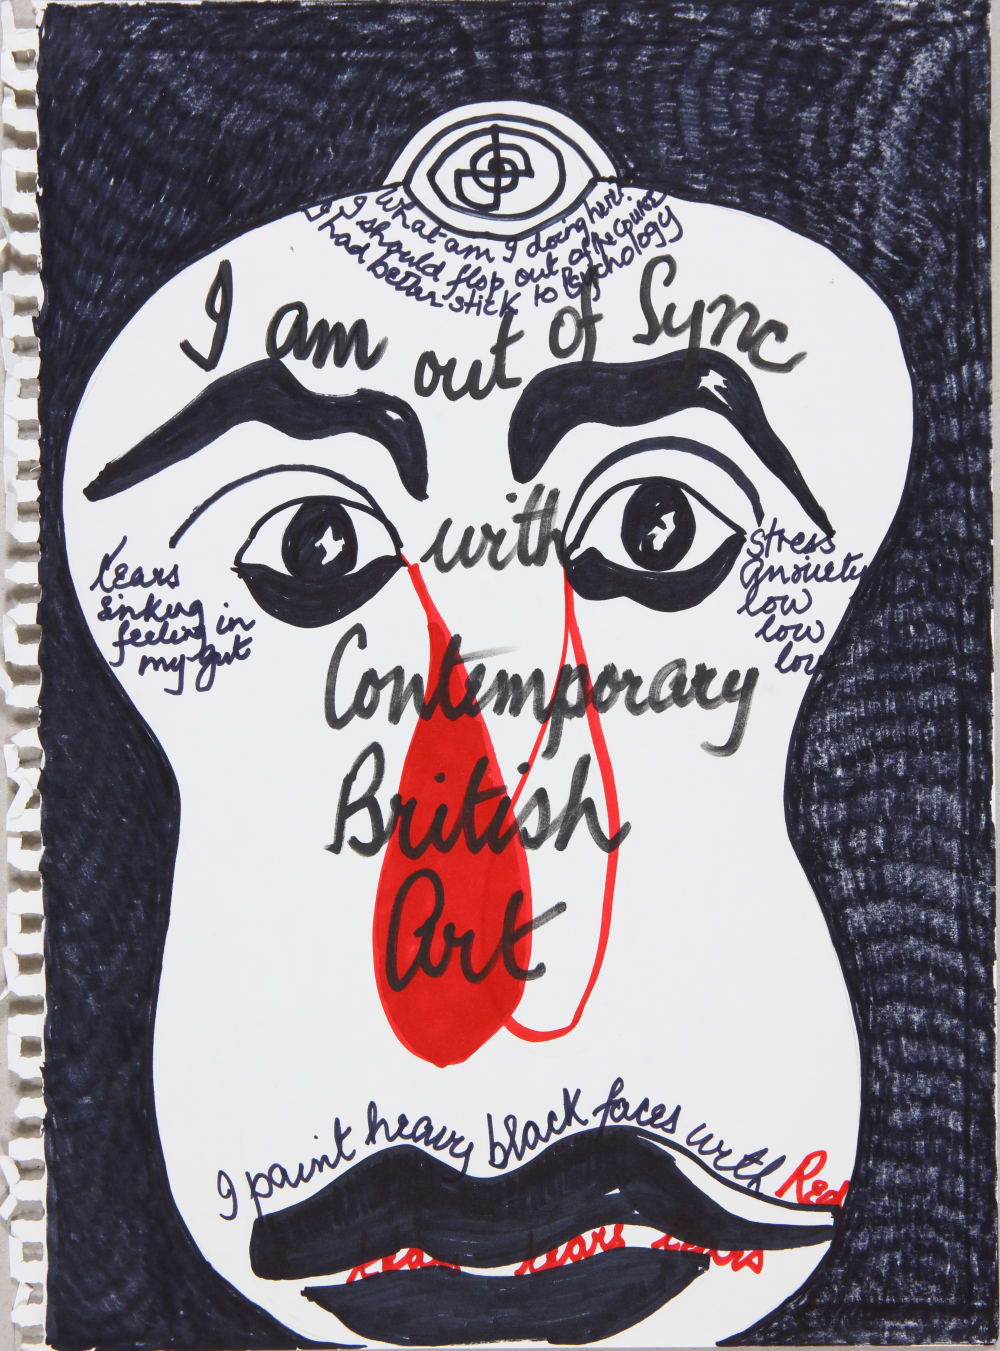 What am I doing here!
I should flop out of the course
I had better stick to Psychology
I am out of Sync
with
Contemporary
British
Art
tears
sinking
feeling in
my gut
stress
anxiety
low
low
low
I paint heavy black faces with Red
tears tears tears